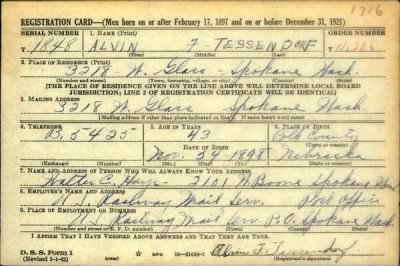 1316
REGISTRATION CARD—(Men born on or after February 17, 1897 and on or before December 31, 1921)
SERIAL NUMBER 1. NAME (Print) ORDER NUMBER
T 1848 ALVIN F TESSENDORF
(First) (Middle) (Last)
2. PLACE OF RESIDENCE (Print)
3218 W. Glass Spokane Wash
(Number and street) (Town, township, village, or city) (County) (State)
[THE PLACE OF RESIDENCE GIVEN ON THE LINE ABOVE WILL DETERMINE LOCAL BOARD
JURISDICTION; LINE 2 OF REGISTRATION CERTIFICATE WILL BE IDENTICAL]
3. MAILING ADDRESS
3218 W. Glass Spokane Wash
[Mailing address if other than place indicated on line 2. If same insert word same]
4. TELEPHONE 5. AGE IN YEARS 6. PLACE OF BIRTH
B. 5425 43 County
DATE OF BIRTH (Town or county)
Nov. 24 1898 Nebraska
(Exchange) (Number) (Mo.) (Day) (Yr.) (State or country)
7. NAME AND ADDRESS OF PERSON WHO WILL ALWAYS KNOW YOUR ADDRESS
Walter E. 3101 W Boone Spokane Wash
8. EMPLOYER'S NAME AND ADDRESS
Railway Mail Serv. Post Office
9. PLACE OF EMPLOYMENT OR BUSINESS
Railway Mail Serv. P.O. Spokane Wash.
(Number and street or R. F. D. number) (Town) (County) (State)
I AFFIRM THAT I HAVE VERIFIED ABOVE ANSWERS AND THAT THEY ARE TRUE.
D. S. S. Form 1 GPO 16—21630-1 Alvin F. Tessendorf
(Revised 1-1-42) (over)